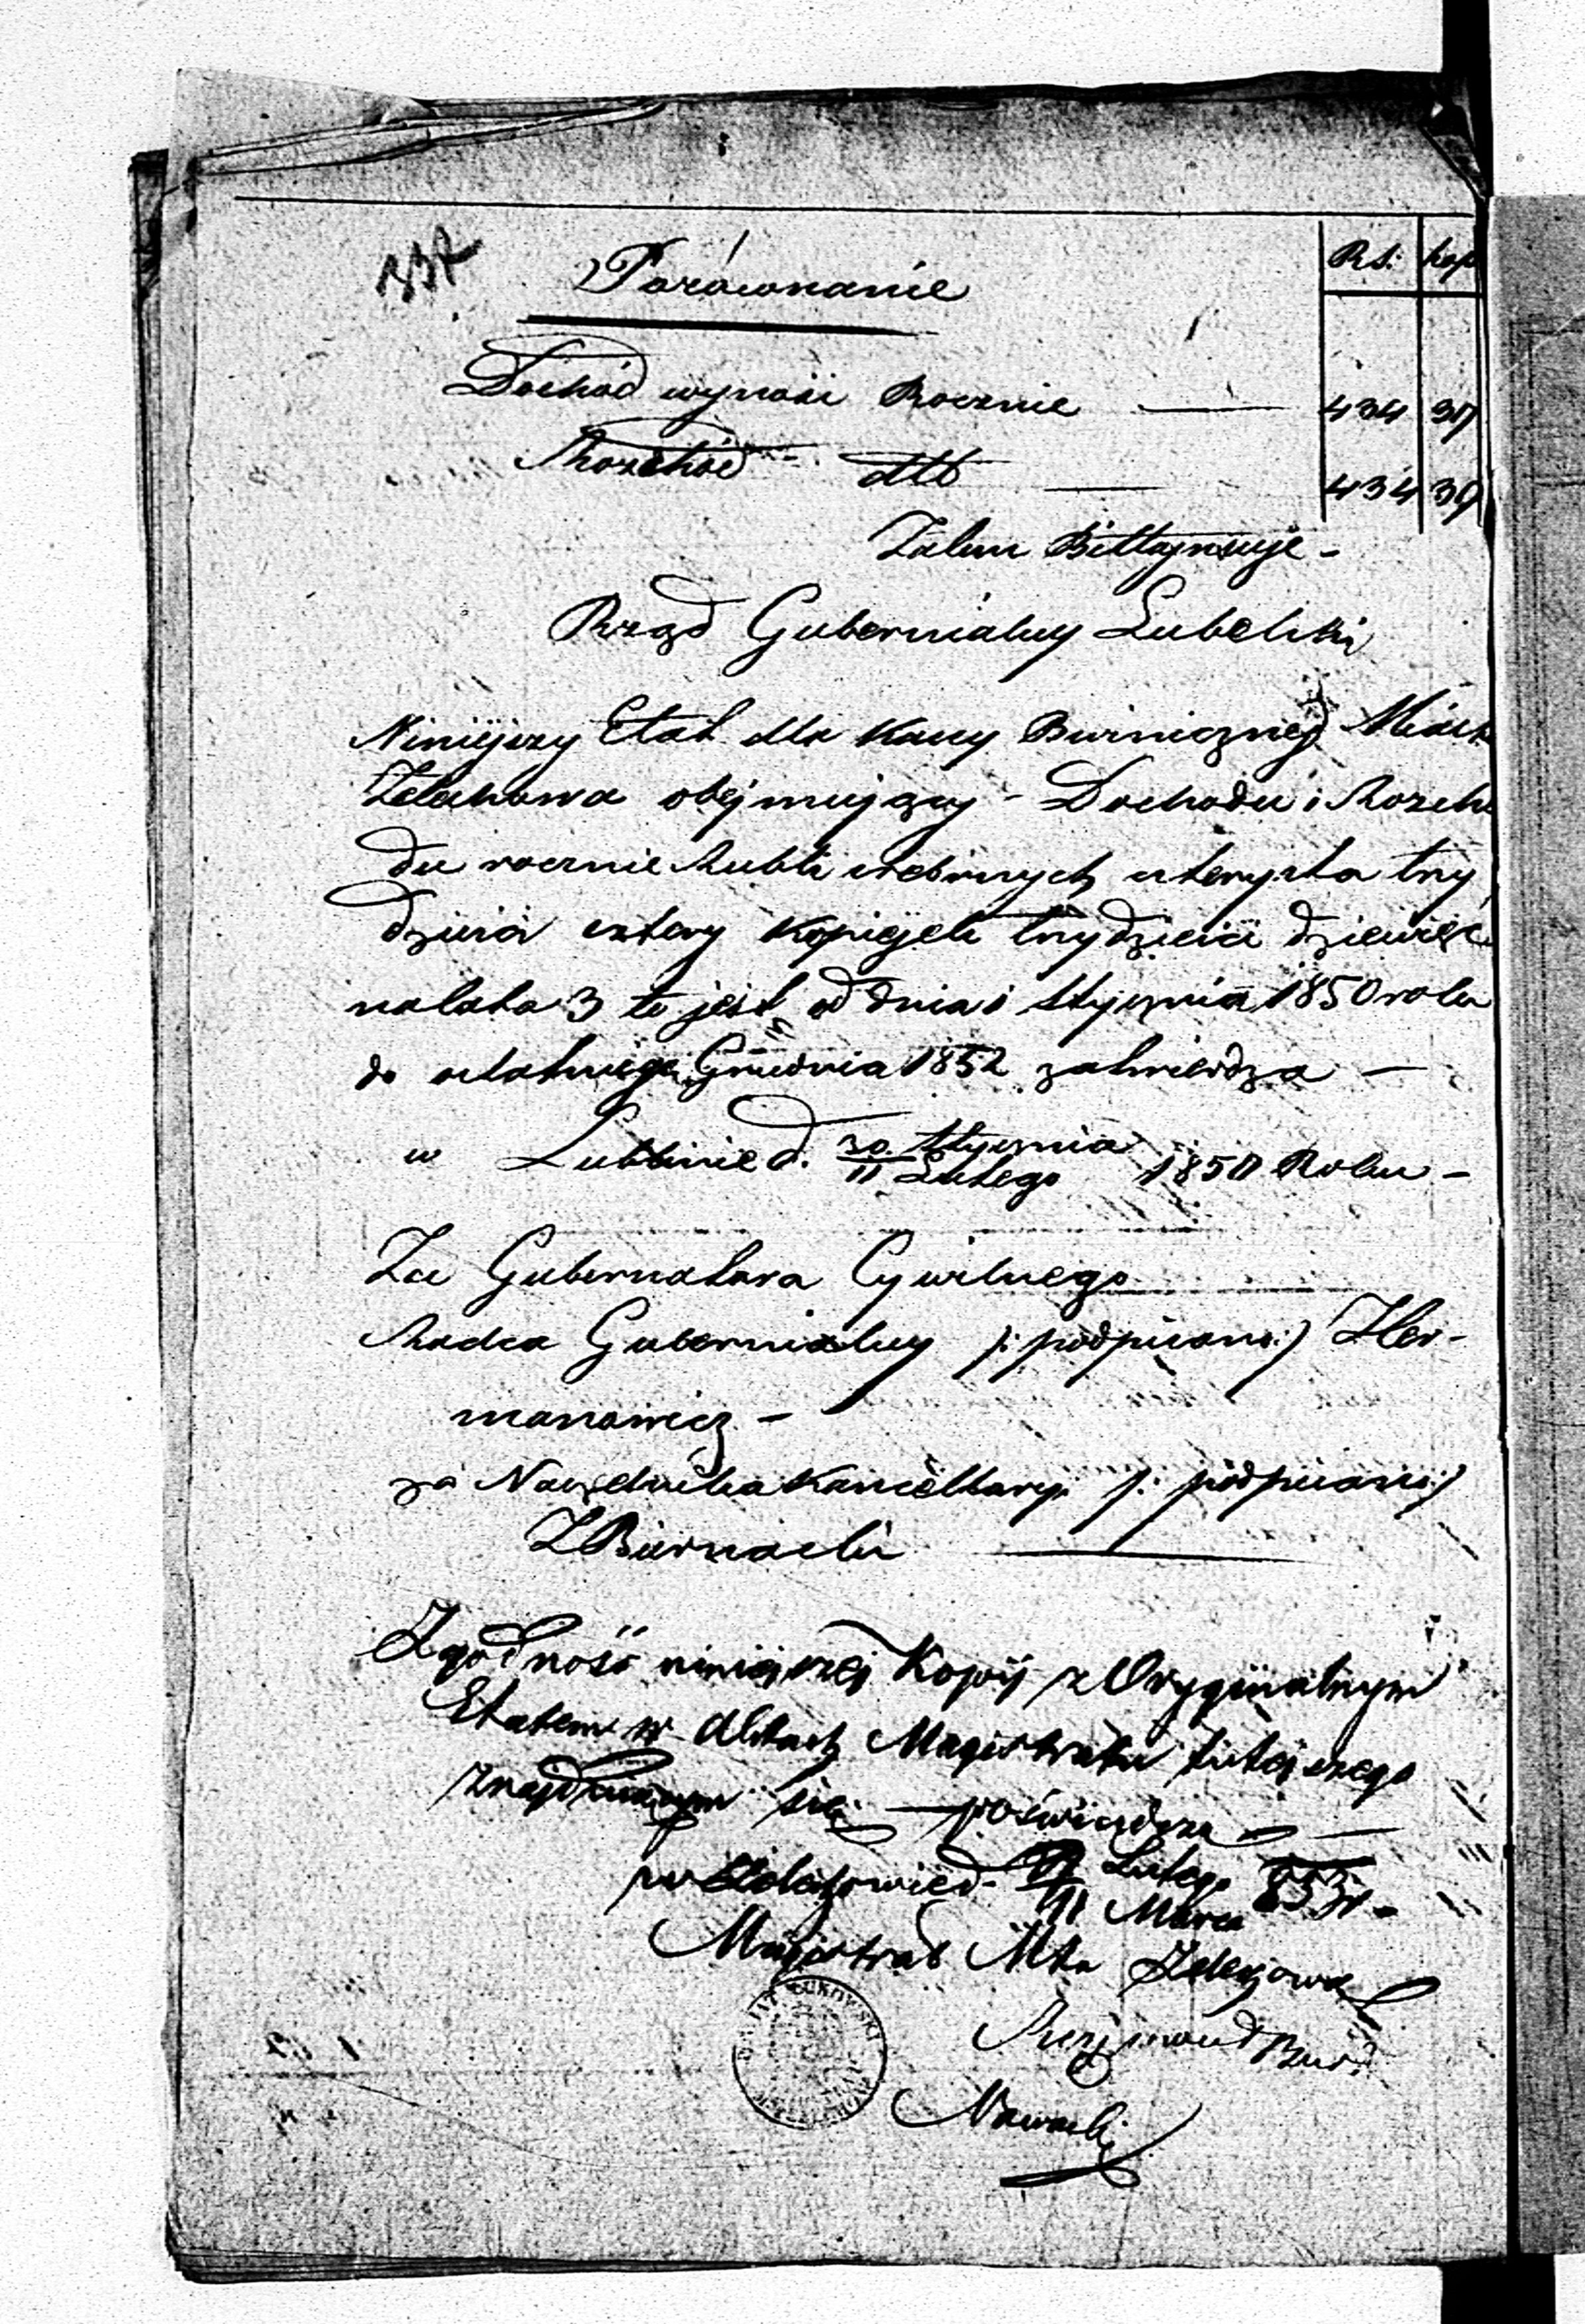 337
Rs. kop
Porównanie
Dochód wynosi Rocznie 434 39
Rozchód dtto 434 39
Zatem Billansuje -
Rząd Gubernialny Lubelski
Niniejszy Etat dla Kassy Miasta
Żelechowa obejmujący - Dochodu i Rozcho
du rocznie Rubli srebrnych czterysta trzy
dzieści cztery kopiejek trzydzieści dziewięć
na lata 3 to jest od dnia 1 Stycznia 1850 roku
do ostatniego Grudnia 1852 zatwierdza -
w Lublinie d. 30 Stycznia / 11 Lutego 1850 Roku -
Za Gubernatora Cywilnego
Radca Gubernialny /: podpisano :/ Her-
manowicz -
za Naczelnika Kancellaryi /: podpisano :/
Biernacki
Zgodność niniejszej Kopij z Oryginalnym
Etatem w Aktach Magistratu tutejszego
znajdującym się - poświadcza -
w Żelechowie d. Lutego / 11 Marca 853 r. -
Magistrat Mta Żelechowa
Nowacki